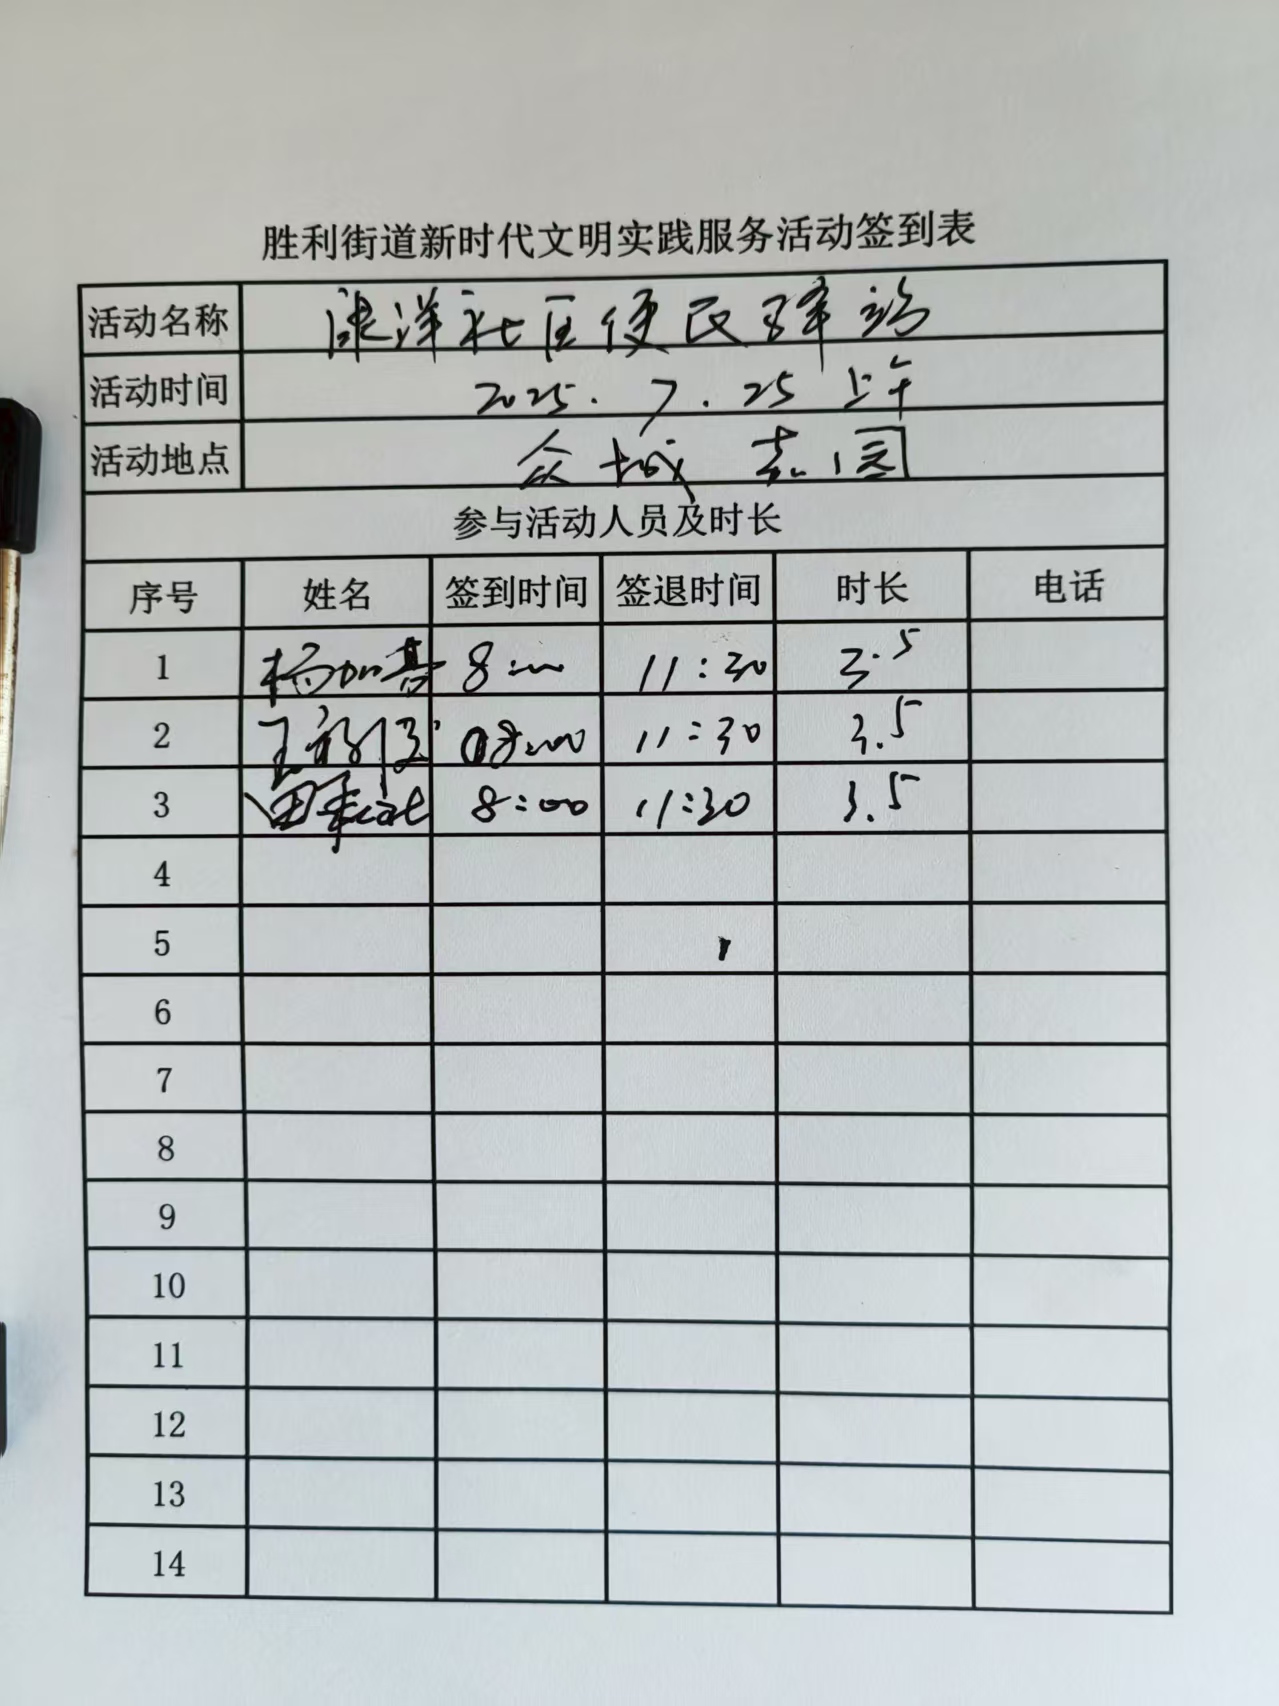 胜利街道新时代文明实践服务活动签到表
活动名称 社区便民驿站
活动时间 2025.7.25 上午
活动地点 众城嘉园
参与活动人员及时长
序号 姓名 签到时间 签退时间 时长 电话
1 8:00 11:30 3.5
2 08:00 11:30 3.5
3 8:00 11:30 3.5
4
5
6
7
8
9
10
11
12
13
14